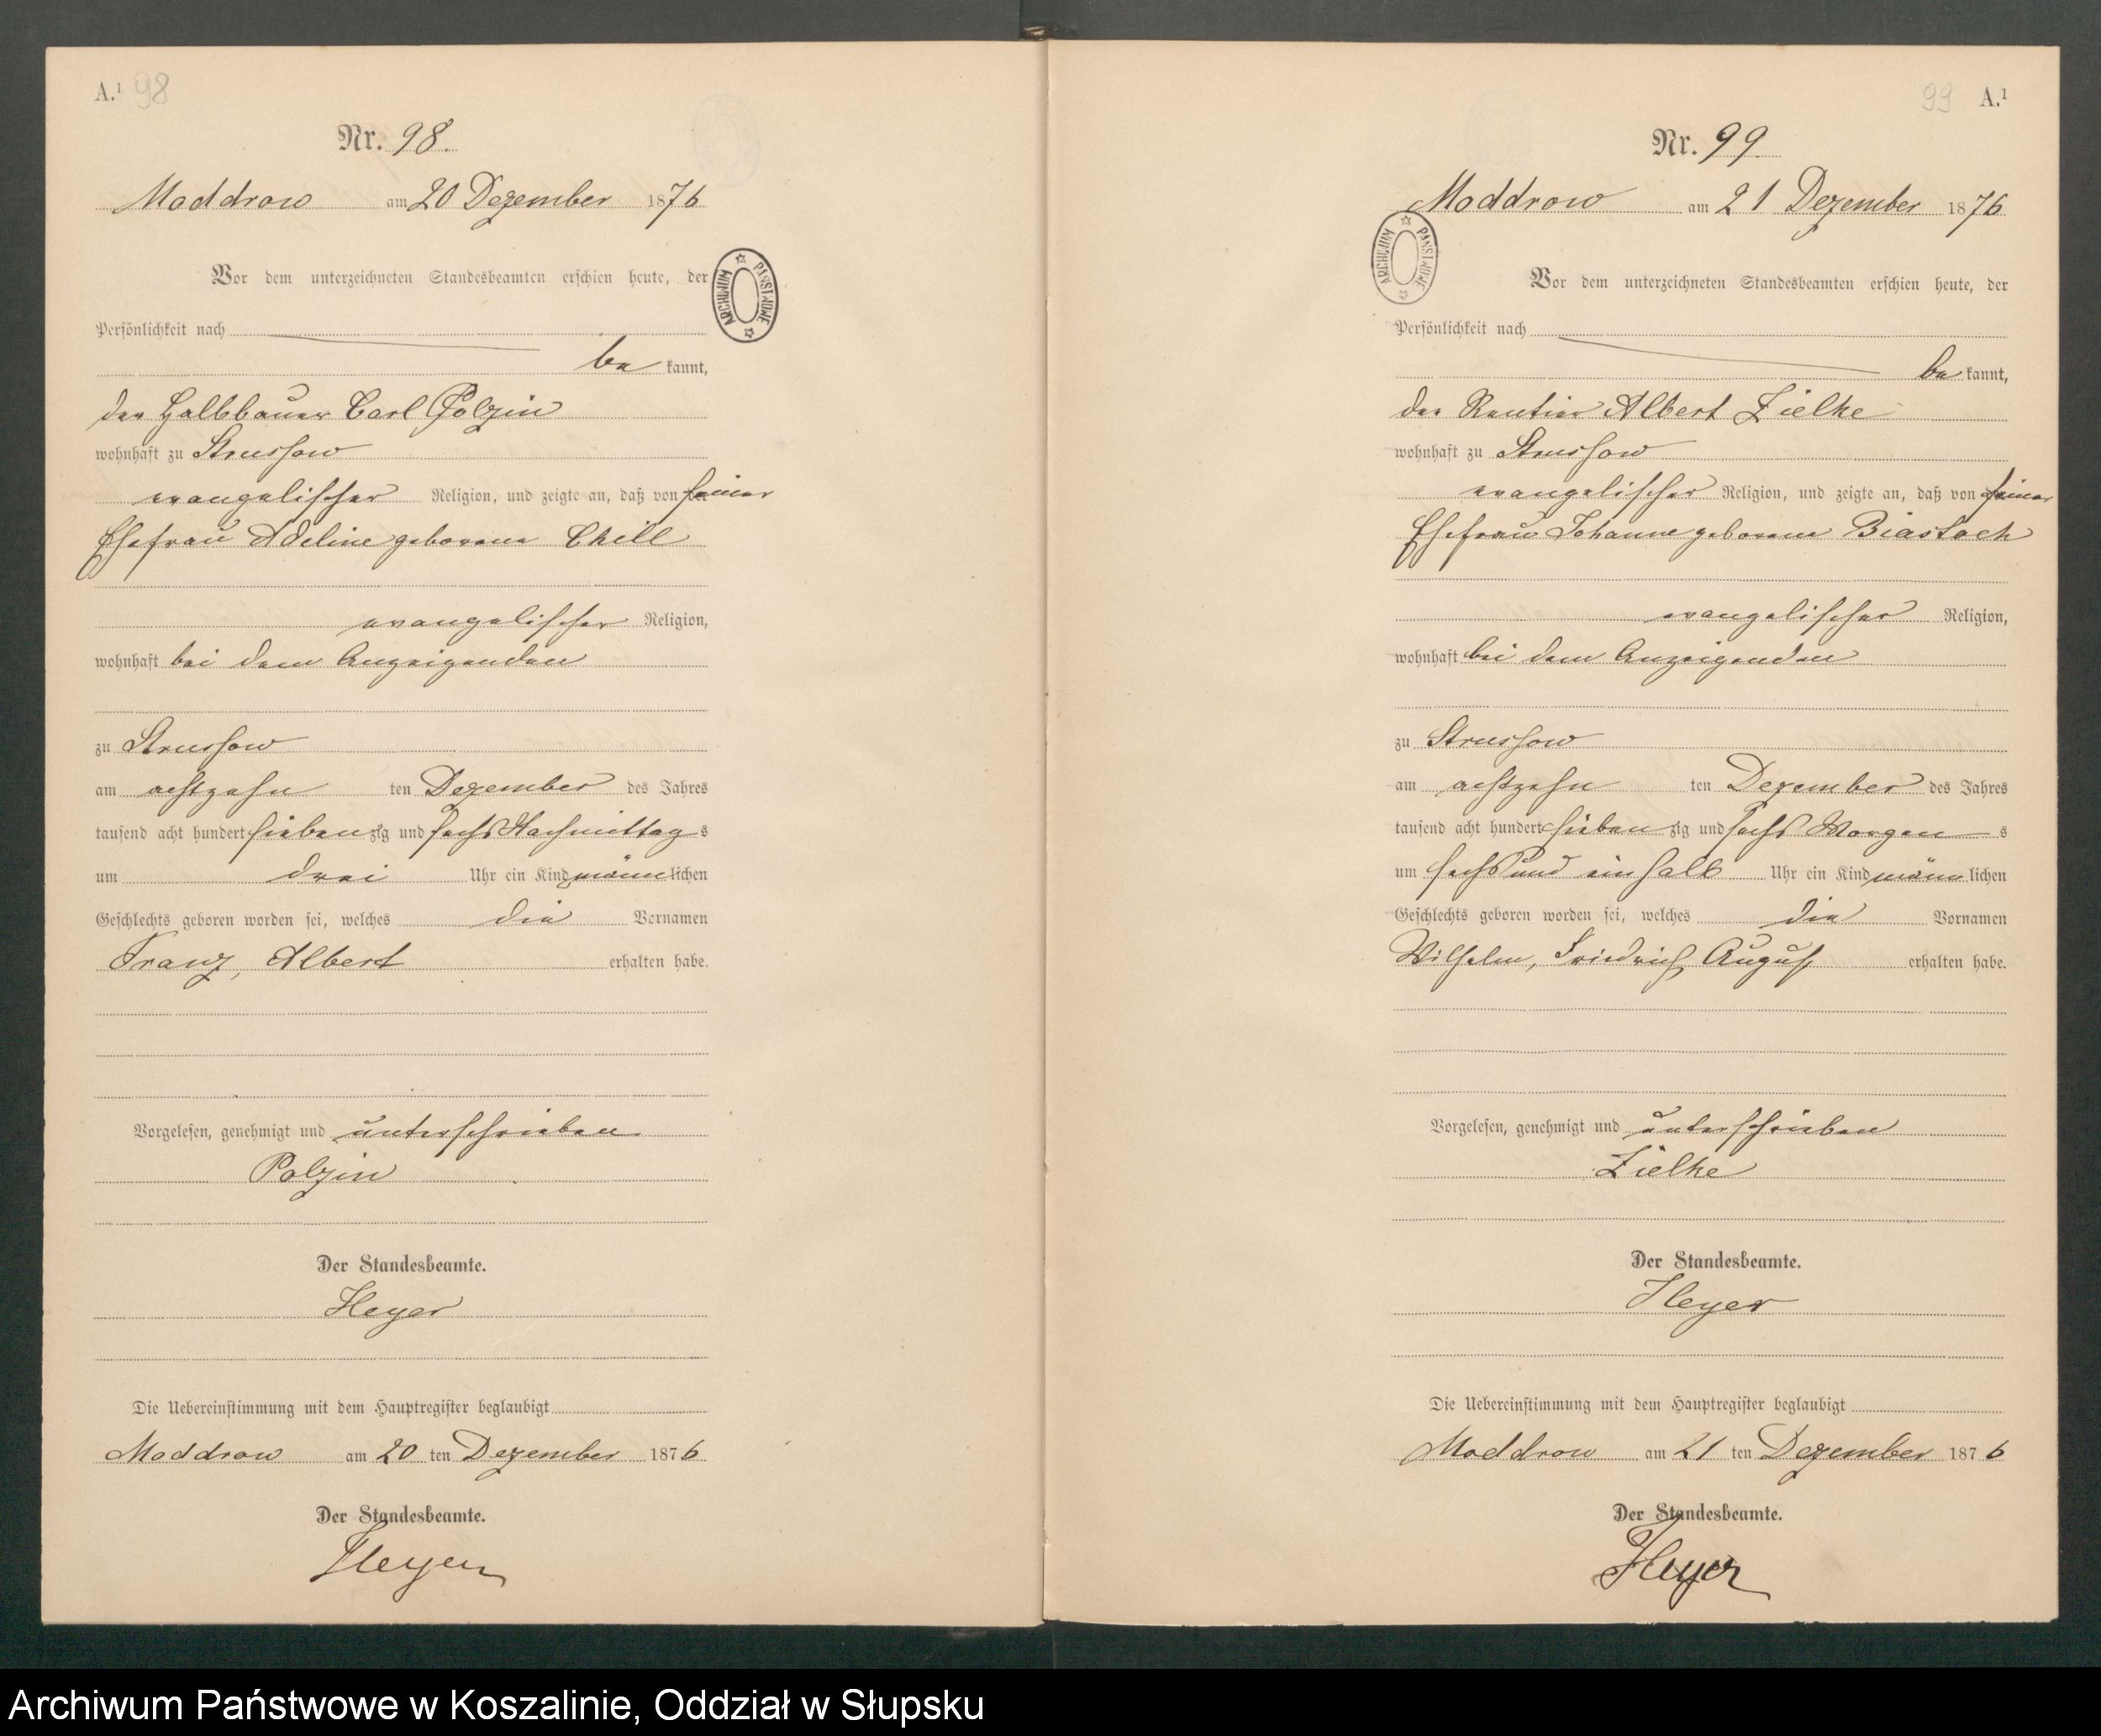 A.¹ 98
Nr. 98.
Moddrow am 20 Dezember 1876
Vor dem unterzeichneten Standesbeamten erschien heute, der
Persönlichkeit nach
be kannt,
der Halbbauer Carl Polzin
wohnhaft zu Strussow
evangelischer Religion, und zeigte an, daß von seiner
Ehefrau Adeline geborene Chill
evangelischer Religion,
wohnhaft bei dem Anzeigenden
zu Strussow
am achtzehn ten Dezember des Jahres
tausend acht hundert siebenzig und sechs Nachmittag s
um drei Uhr ein Kind männlichen
Geschlechts geboren worden sei, welches die Vornamen
Franz, Albert erhalten habe.
Vorgelesen, genehmigt und unterschrieben
Polzin
Der Standesbeamte.
Heyer
Die Uebereinstimmung mit dem Hauptregister beglaubigt
Moddrow am 20 ten Dezember 1876
Der Standesbeamte.
Heyer
ARCHIWUM PAŃSTWOWE
99 A.¹
Nr. 99.
Moddrow am 21 Dezember 1876
Vor dem unterzeichneten Standesbeamten erschien heute, der
Persönlichkeit nach
be kannt,
der Rentier Albert Zielke
wohnhaft zu Strussow
evangelischer Religion, und zeigte an, daß von seiner
Ehefrau Johanne geborene Biastoch
evangelischer Religion,
wohnhaft bei dem Anzeigenden
zu Strussow
am achtzehn ten Dezember des Jahres
tausend acht hundert siebenzig und sechs Morgen s
um sechs und ein halb Uhr ein Kind männlichen
Geschlechts geboren worden sei, welches die Vornamen
Wilhelm, Friedrich, August erhalten habe.
Vorgelesen, genehmigt und unterschrieben
Zielke
Der Standesbeamte.
Heyer
Die Uebereinstimmung mit dem Hauptregister beglaubigt
Moddrow am 21 ten Dezember 1876
Der Standesbeamte.
Heyer
ARCHIWUM PAŃSTWOWE
Archiwum Państwowe w Koszalinie, Oddział w Słupsku